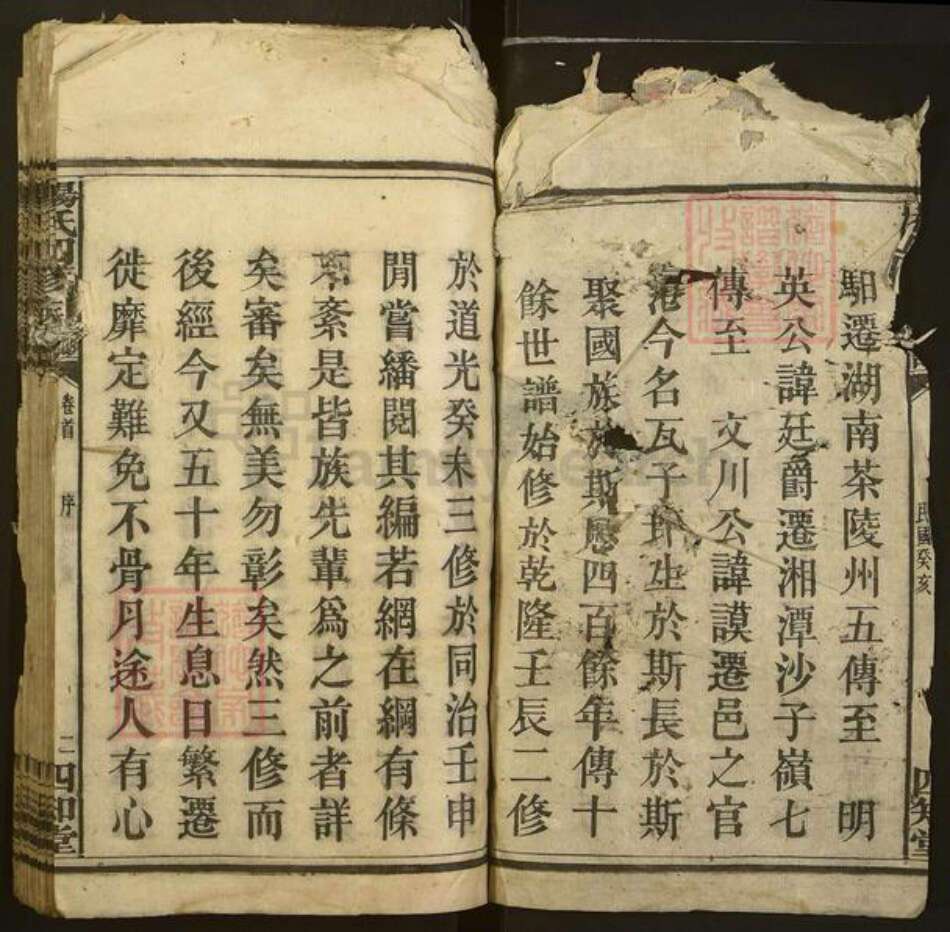 駔遷湖南茶陵州五傳至　明
英公諱廷爵遷湘潭沙子嶺七
傳至　文川公諱謨遷邑之官
港今名瓦子坪生於斯長於斯
聚國族於斯歷四百餘年傳十
餘世譜始修於乾隆壬辰二修
民國癸亥
四知堂
於道光癸未三修於同治壬申
閒嘗繙閱其編若網在綱有條
不紊是皆族先輩爲之前者詳
矣審矣無美勿彰矣然三修而
後經今又五十年生息日繁遷
徙靡定難免不骨月途人有心
楊氏四修族譜
卷首
序
二
四知堂